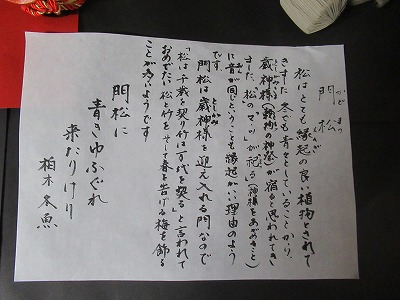 門松
かど まつ
松はとても縁起の良い植物とされて
きました。冬でも青々としていることから、
歳神様(穀物の神様)が宿ると思われてき
としがみ
ました。松の「まつ」が祀る(神様をあがめること)
に音が同じということも縁起がいい理由のよう
です。
門松は歳神様を迎え入れる門なので
としがみ
「松は千歳を契り竹は万代を契る」と言われて
おめでたい松と竹をそして春を告げる梅を飾る
ことが多いようです
門松に
青きゆふぐれ
来たりけり
柏木冬魚